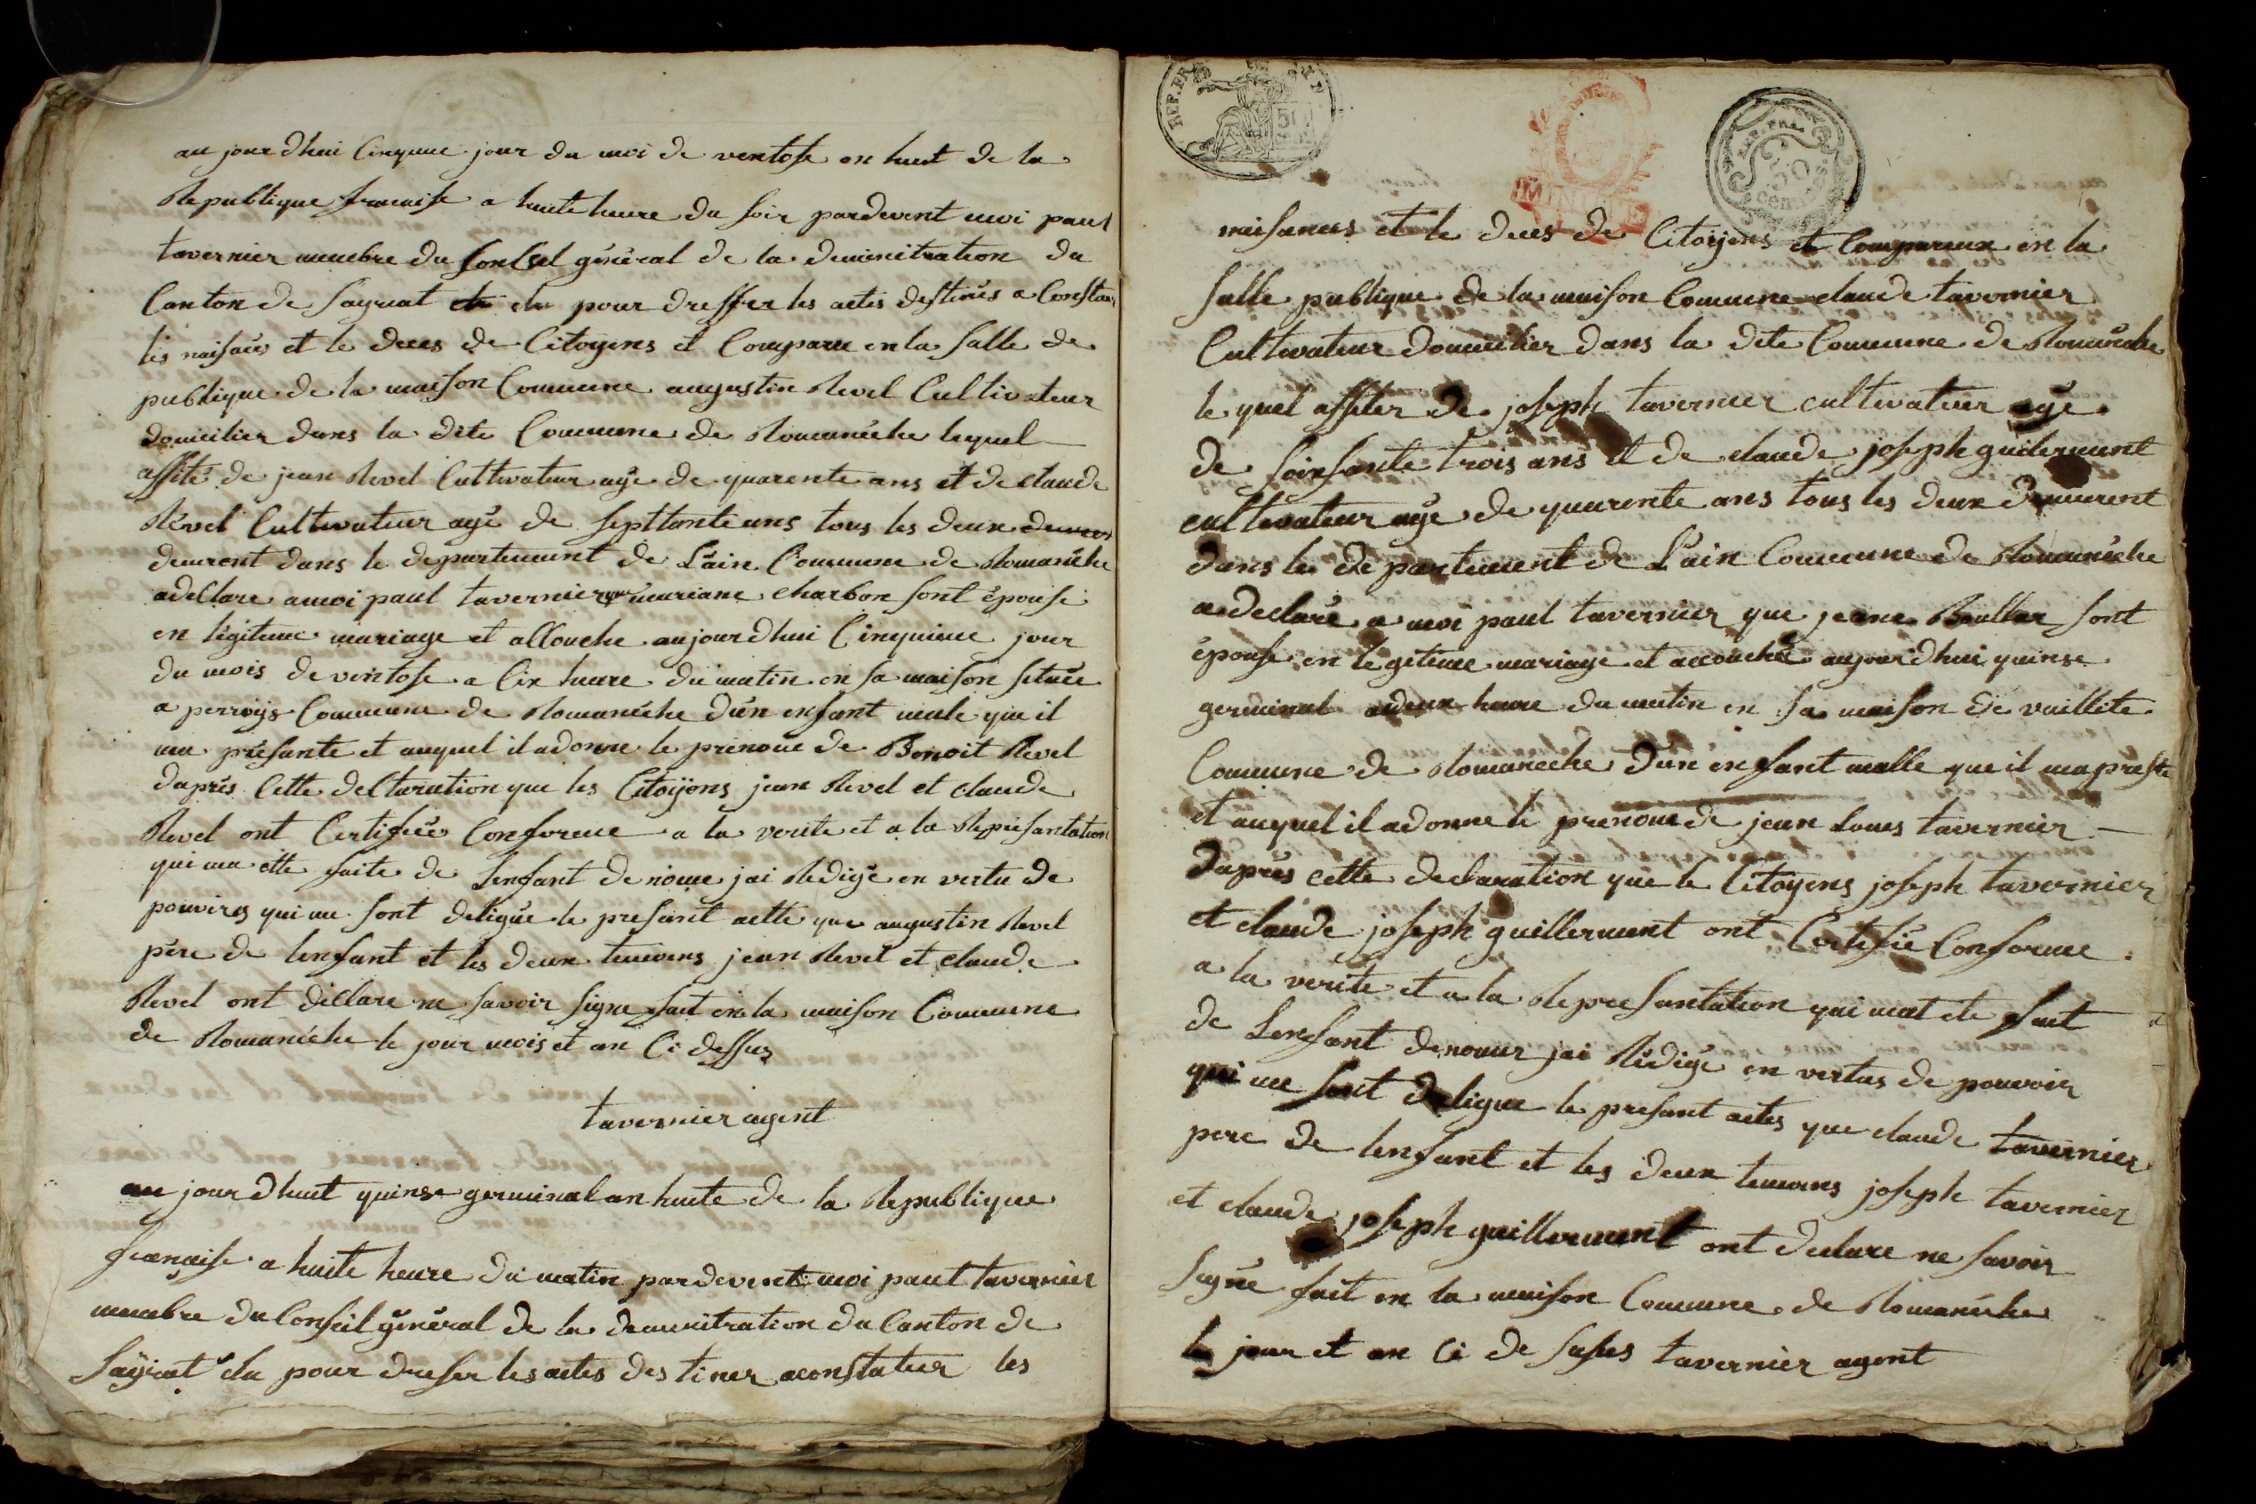 au jour dhui Cinquie jour du moi de ventose an huit de la
Republique francaise a huite heure du soir pardevent moi paul
tavernier membre du Conseil général de la deminitration du
Canton de Sayriat elu pour dresser les actes destinés a Consta
les naisaces et le deces de Citoyens et Comparu en la Salle de
publique de la maison Commune augustin Revel Cultivateur
domicilier dans la dite Commune de Romanéche lequel
assité de jean Revel Cultivateur agé de quarente ans et de claude
Revel Cultivateur agé de septtente ans tous les deux
demeront dans le departement de Lain Commune de Romanéche
adeclare amoi paul tavernier que mariane charbon sont épouse
en légiteme mariage et accouche aujourdhui Cinquime jour
du mois de ventose a Cix heure du matin en sa maison située
a perroys Commune de Romanéche dún enfant male que il
ma présante et auquel il adonne le prénome de Benoit Revel
daprés Cette declaration que les Citoÿens jean Revel et claude
Revel ont Certifiée Conforme a la verite et a la Représantation
qui ma ette faite de Lenfant denome jai Redigé en vertu de
pouvires qui me sont deligue le presant actte que augustin Revel
pére de lenfant et les deux temoins jean Revel et claude
Revel ont déclare ne savoir signe fait en la maison Commune
de Romanéche le jour mois et an Ci dessus
tavernier agent
au jour dhuit quinse germinal an huite de la Republique
françaisse a huite heure du matin pardevent moi paul tavernier
membre du Conseil général de la deminitration du Canton de
Sayriat elu pour dreser les actes des tiner aconstatier les
REP. FRA
50
REP. FRA.
50
centimes
naisances et le deces de Citoÿens et Compareux en la
Salle publique de la maison Commune claude tavernier
Cultivateur domicilier dans la dite Commune de Romanéche
le quel assiter de joseph tavernier cultivateur agé
de soixsante trois ans et de claude joseph guilermint
cultivateur agé de quarente ans tous les deux demeurent
dans le departement de Lain Commune de Romanéche
a declaré a moi paul tavernier que jeane Boullar sont
épouse en legeteme mariage et accouché aujourdhui quinse
germinal adeux heure du matin en sa maison de vaillite
Commune de Romaneche dun enfant malle que il mapreste
et auquel il adonne le prenome de jean loues tavernier
Daprés cette declaration que le Citoyens joseph tavernier
et claude joseph guillermint ont Certifié Conforme
a la verite et a la Represantation qui mat ete fait
de Lenfant denomer jai Rédigé en vertus de pouvoir
qui me sont deligue le presant actes que claude tavernier
pere de lenfant et les deux temoins joseph tavernier
et claude joseph guillermint ont declare ne savoir
Signe fait en la maison Commune de Romanéche
le jour et an Ci de suses tavernier agent